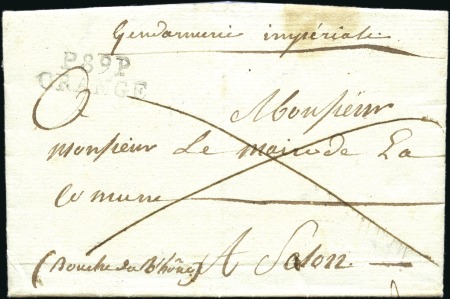 Gendarmerie impériale
P89P
ORANGE
Monsieur
monsieur Le maire de La
Comune
(Bouche du Rhône) A Salon